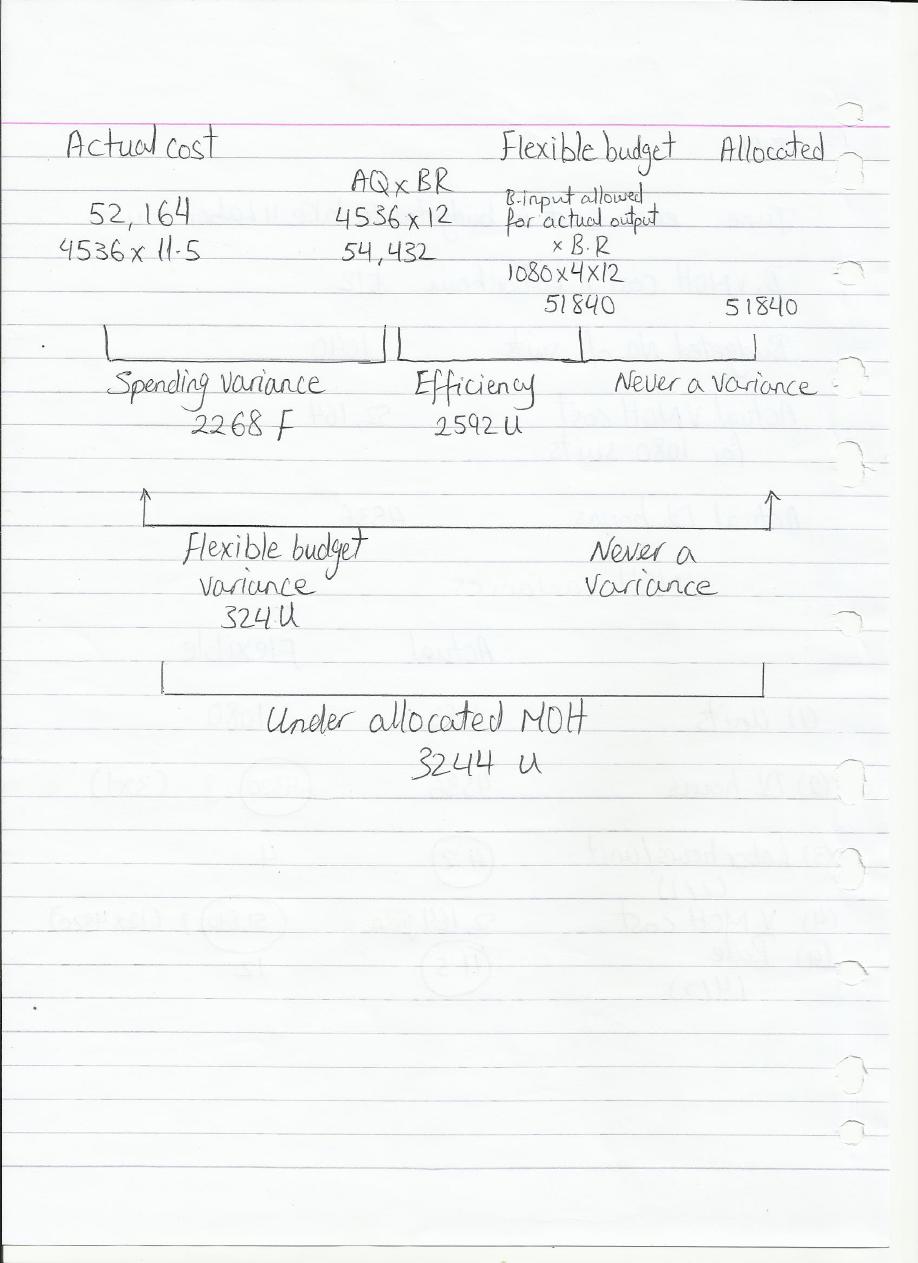 Actual cost Flexible budget Allocated
AQ x BR
B.input allowed
52,164 4536 x 12 for actual output
4536 x 11.5 54,432 x B.R
1080x4x12
51840 51840
Spending variance Efficiency Never a variance
2268 F 2592 U
Flexible budget Never a
variance variance
324 U
Under allocated MOH
3244 U